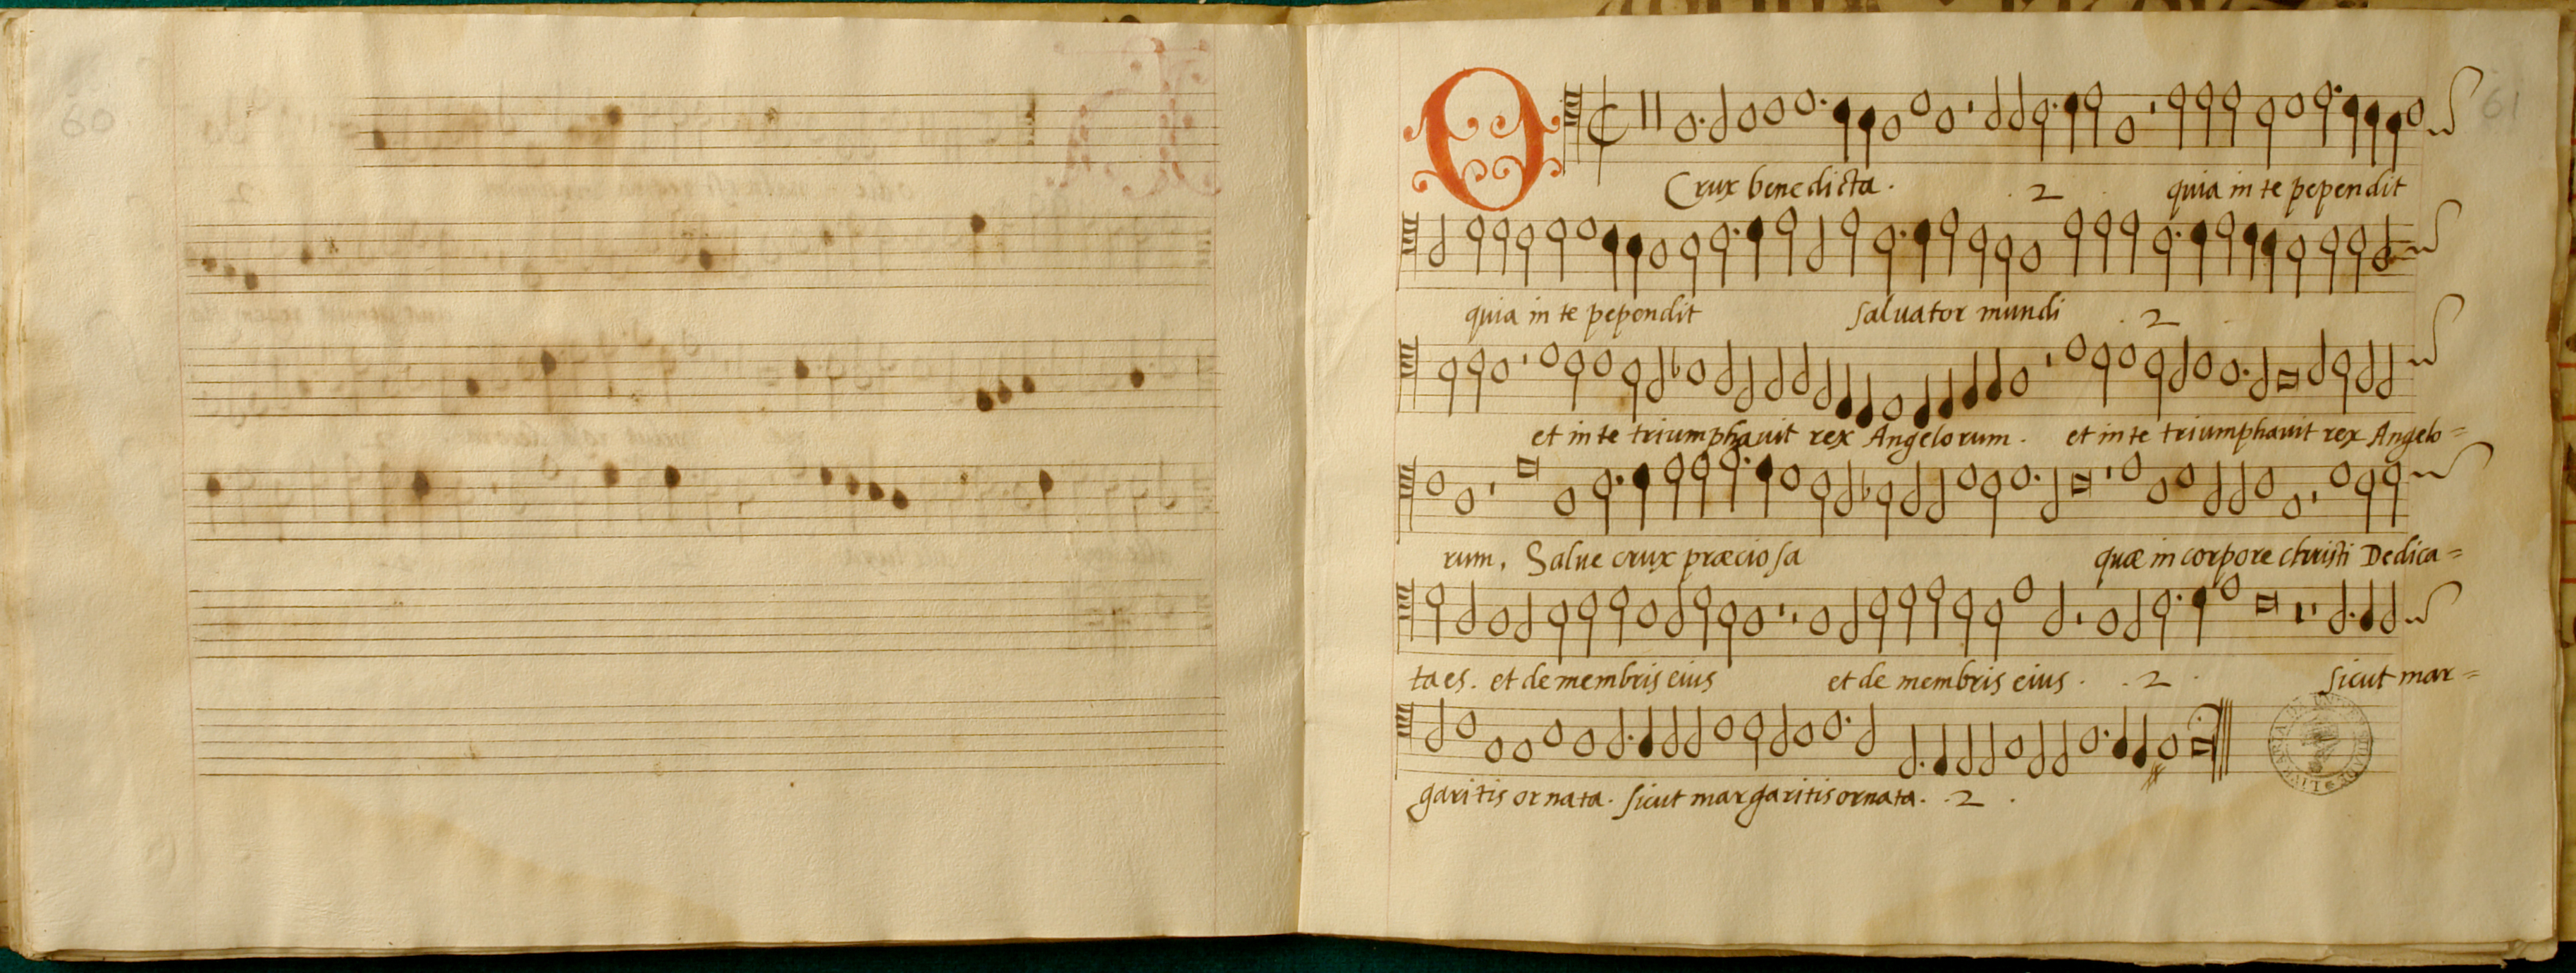 60
61
O
Crux benedicta . . 2 . quia in te pependit
quia in te pependit saluator mundi . 2 .
et in te triumphauit rex Angelorum . et in te triumphauit rex Angelo=
rum . Salue crux præciosa quæ in corpore christi Dedica=
ta es . et de membris eius et de membris eius . . 2 . sicut mar=
garitis ornata . sicut margaritis ornata . . 2 .